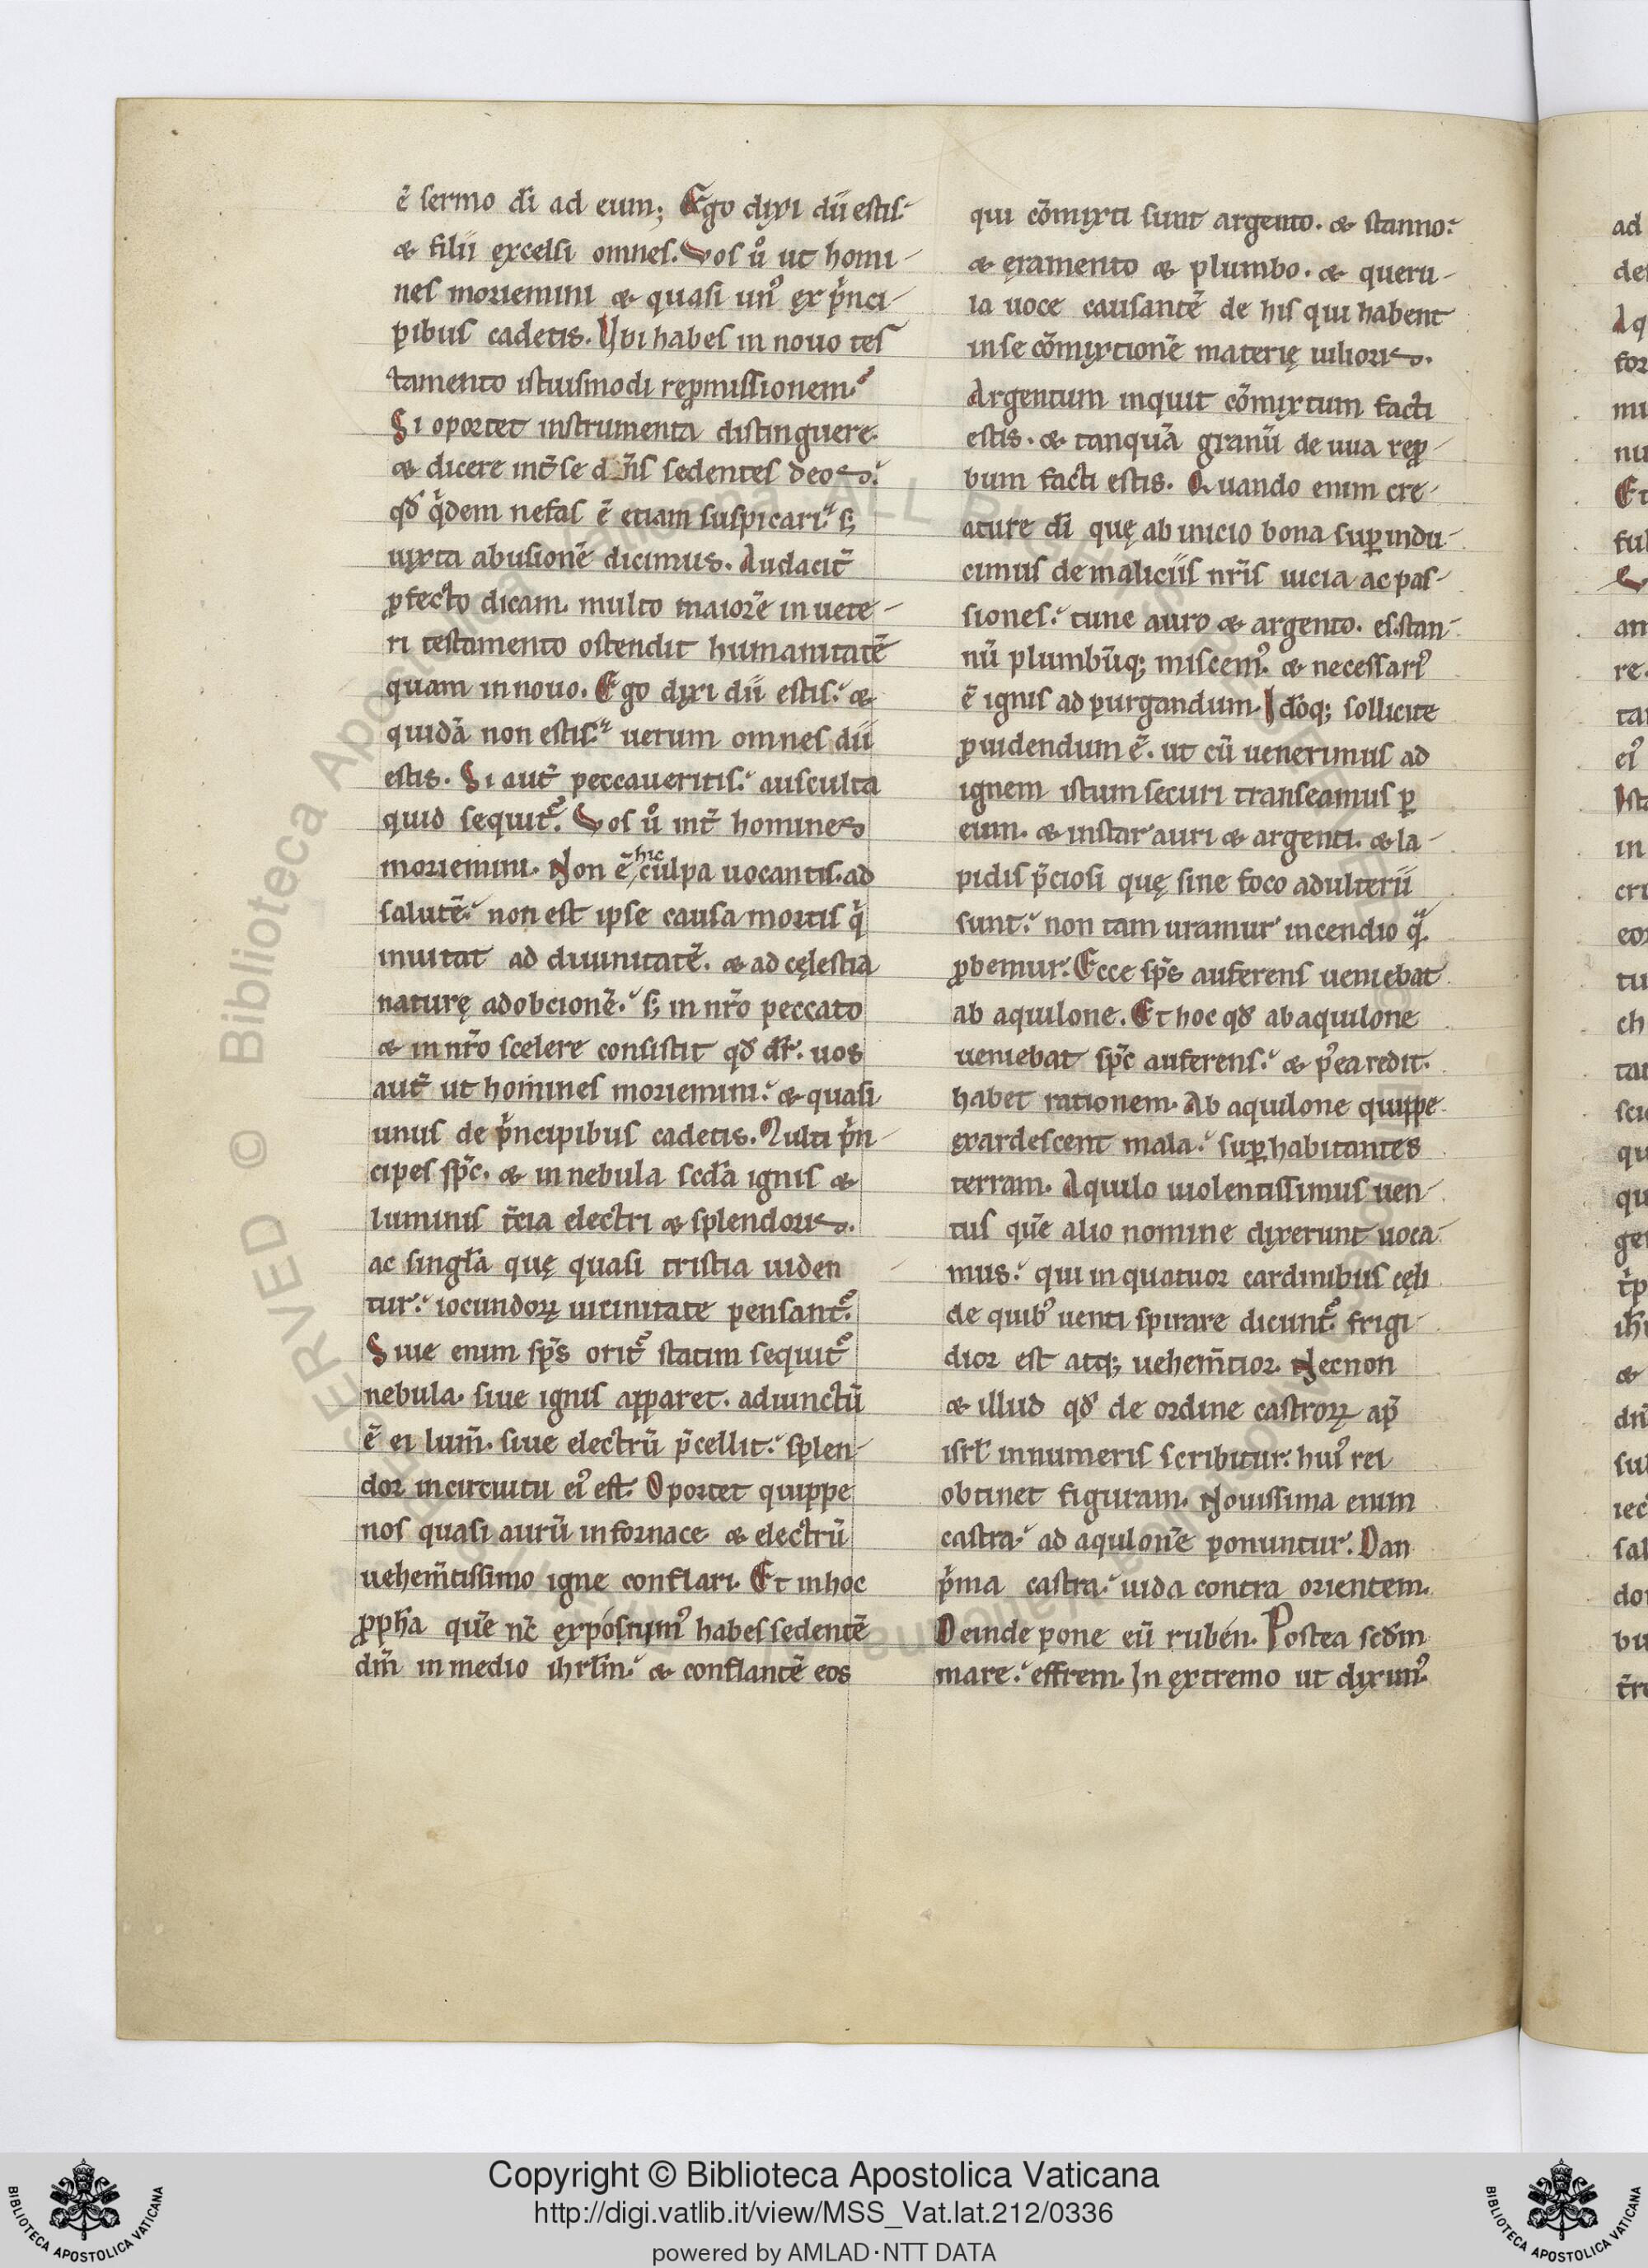 ē sermo dī ad eum; Ego dixi dii estis.
& filii excelsi omnes. Vos u̾ ut homi-
nes moriemini & quasi un᾽ ex p̾nci-
pibus cadetis. Ubi habes in nouo tes
tamento istiusmodi repmissionem.
Si oportet instrumenta distinguere.
& dicere int̄ se d nīs sedentes deos.
qd̾ q̾dem nefas ē etiam suspicari. s;
iuxta abusionē dicimus. Audacit̄
pfecto dicam. multo maiorē in uete-
ri testamento ostendit humanitatē
quam in nouo. Ego dixi dii estis. &
quidā non estis. uerum omnes dii
estis. Si aut̄ peccaueritis. ausculta
quid sequit᾽. Vos u̾ int̄ homines
moriemini. Non ē hic culpa uocantis. ad
salutē. non est ipse causa mortis q̾
inuitat ad diuinitatē. & ad cęlestia
naturę adobcionē. s; in nr̄o peccato
& in nr̄o scelere consistit qd̾ dr̄. uos
aut̄ ut homines moriemini. & quasi
unus de p̾ncipibus cadetis. Multi p̾n-
cipes sp̄c. & in nebula scda ignis &
luminis t̄cia electri & splendoris.
ac singl̄a quę quasi tristia uiden
tur. iocundoꝝ uicinitate pensant᾽.
Siue enim sp̄s orit᾽ statim sequit᾽
nebula. siue ignis apparet. adiunctū
ē ei lum̄. siue electrū p̄cellit. splen-
dor in circuitu ei᾽ est. Oportet quippe
nos quasi aurū in fornace & electrū
uehem̄tissimo igne conflari. Et in hoc
ppha quē nc̄ exposuim᾽ habes sedentē
dm̄ in medio ihrlm̄. & conflantē eos
qui cōmixti sunt argento. & stanno.
& eramento & plumbo. & queru-
la uoce causantē de his qui habent
in se cōmixtionē materię uilioris.
Argentum inquit cōmixtum facti
estis. & tanquā granū de uua rep-
bum facti estis. Quando enim cre-
ature dī quę ab inicio bona sup indu-
cimus de maliciis nrīs uicia ac pas-
siones. tunc auro & argento. es. stan-
nū plumbūq; miscem᾽. & necessari᾽
ē ignis ad purgandum. Idōq; sollicite
puidendum ē. ut cū uenerimus ad
ignem istum securi transeamus p
eum. & instar auri & argenti. & la-
pidis p̄ciosi quę sine foco adulterii
sunt. non tam uramur incendio q̄.
pbemur. Ecce sp̄s auferens ueniebat
ab aquilone. Et hoc qd̾ ab aquilone
ueniebat sp̄c auferens. & p᾽ea redit.
habet rationem. Ab aquilone quippe
exardescent mala. sup habitantes
terram. Aquilo uiolentissimus uen-
tus quē alio nomine dixerunt uoca-
mus. qui in quatuor cardinibus cęli
de quib᾽ uenti spirare dicunt᾽. frigi-
dior est atq; uehem̄tior. Necnon
& illud qd̾ de ordine castroꝝ ap̄
isrl̄ in numeris scribitur. hui᾽ rei
obtinet figuram. Nouissima enim
castra. ad aqulonē ponuntur. Dan
p̄ma castra. uida contra orientem.
Deinde pone eū ruben. Postea scdm
mare. effrem. In extremo ut dixim᾽.
Copyright © Biblioteca Apostolica Vaticana
http://digi.vatlib.it/view/MSS_Vat.lat.212/0336
powered by AMLAD·NTT DATA
BIBLIOTECA APOSTOLICA VATICANA
BIBLIOTECA APOSTOLICA VATICANA